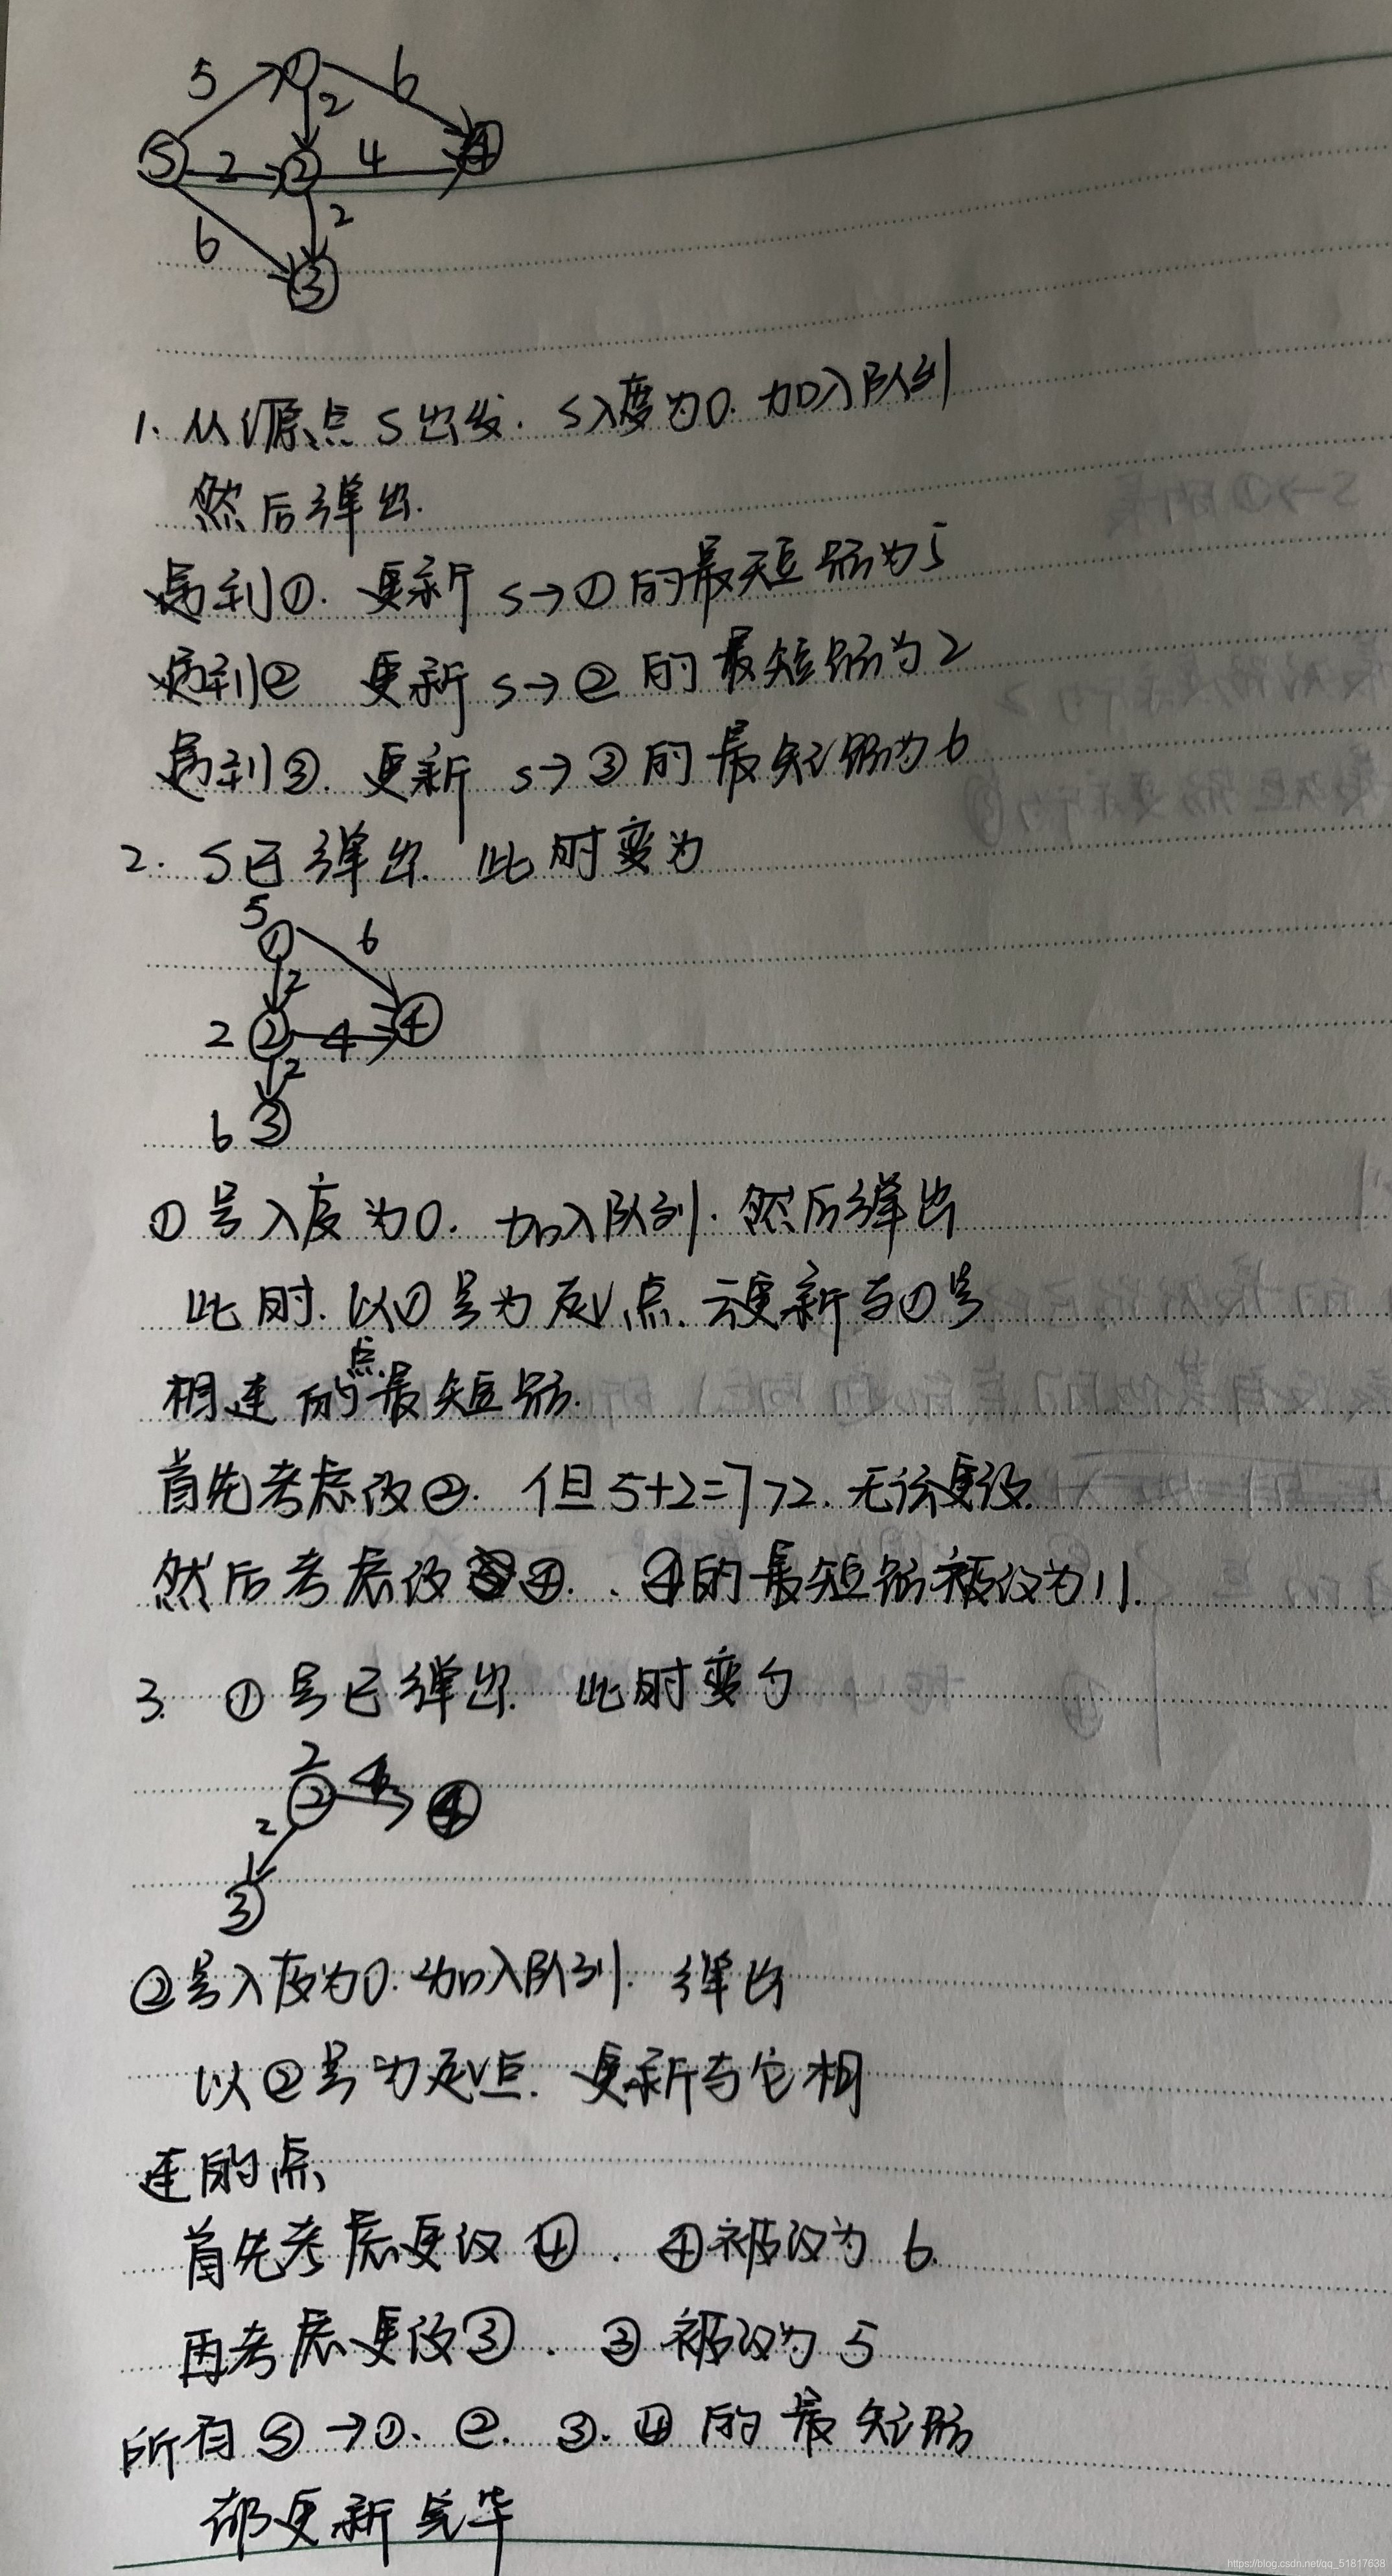 5
6
①
2
S
2
②
4
④
6
2
③
1. 从源点 S 出发. S入度为0. 加入队列
然后弹出.
遇到①. 更新 S→① 的最短路为5
遇到② 更新 S→② 的最短路为2
遇到③. 更新 S→③ 的最短路为6
2. S已弹出. 此时变为
5
①
6
2
2 ② 4 ④
2
6 ③
①号入度为0. 加入队列. 然后弹出
此时. 以①号为起点. 去更新与①号
相连的点最短路.
首先考虑改②. 但5+2=7>2. 无法更改.
然后考虑改④. . ④的最短路被改为11.
3. ①号已弹出. 此时变为
2
② 4 ④
2
③
②号入度为0. 加入队列. 弹出
以②号为起点. 更新与它相
连的点
首先考虑更改④. ④被改为 6.
再考虑更改③. ③被改为 5
所有 Ⓢ→①、②、③、④ 的最短路
都更新完毕
https://blog.csdn.net/qq_51817638